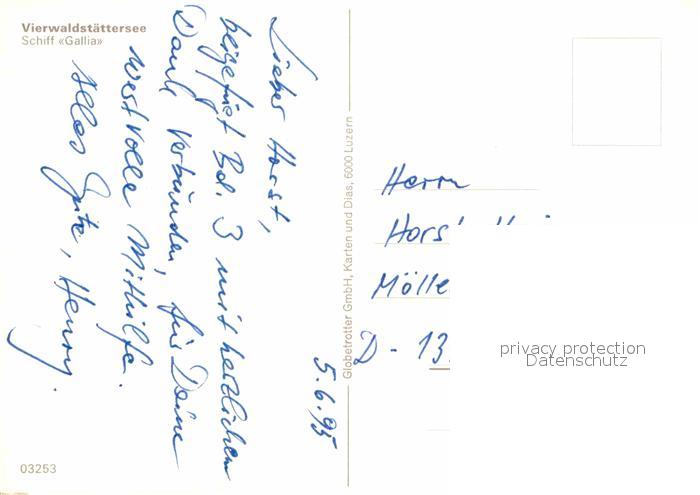 Vierwaldstättersee
Schiff «Gallia»
5.6.95
Lieber Horst,
beigefügt Bd. 3 mit herzlichem
Dank verbunden, für Deine
wertvolle Mithilfe.
Alles Gute, Henry.
03253
Globetrotter GmbH, Karten und Dias, 6000 Luzern
Herrn
Hors
Mölle
D - 13
privacy protection
Datenschutz